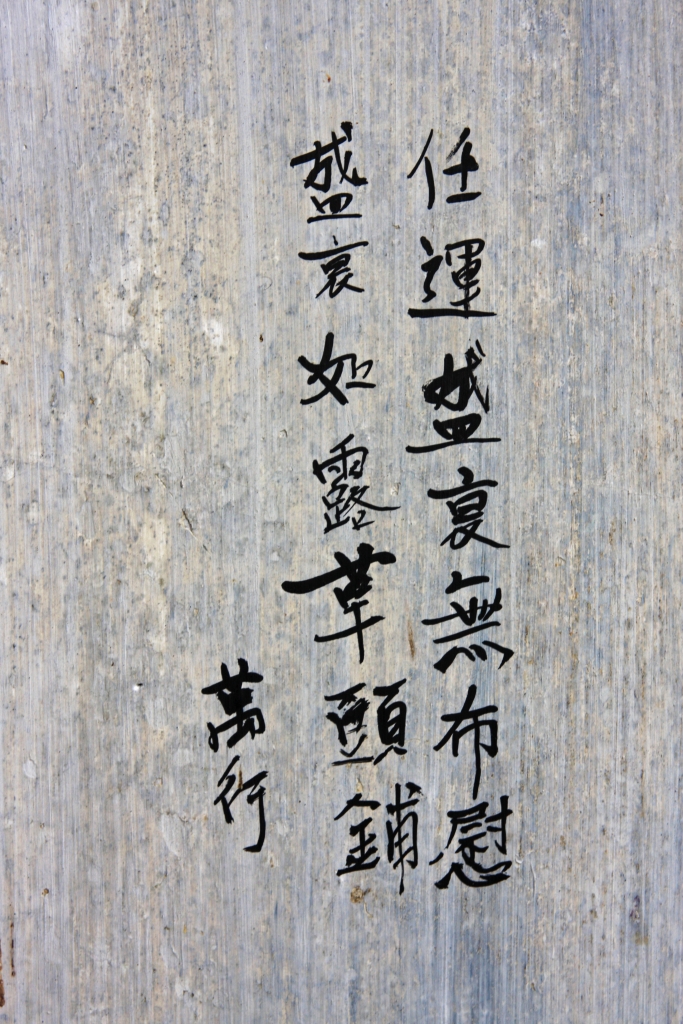 任運盛衰無布慰
盛衰如露草頭鋪
萬行